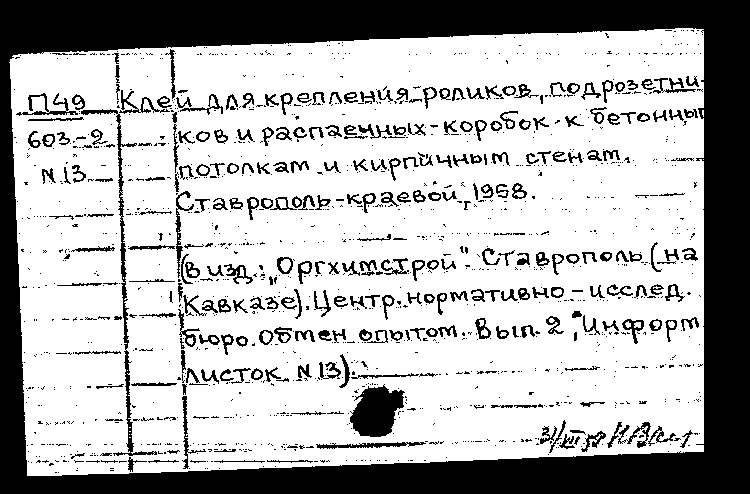 П49 Клей для крепления роликов, подрозетни-
603-2 ков и распаечных коробок к бетонным
N 13 потолкам и кирпичным стенам.
Ставрополь-краевой, 1958.
(В изд.: „Оргхимстрой". Ставрополь (на
Кавказе). Центр. нормативно-исслед.
бюро. Обмен опытом. Вып. 2, "Информ
листок N 13).
31/VIII 58